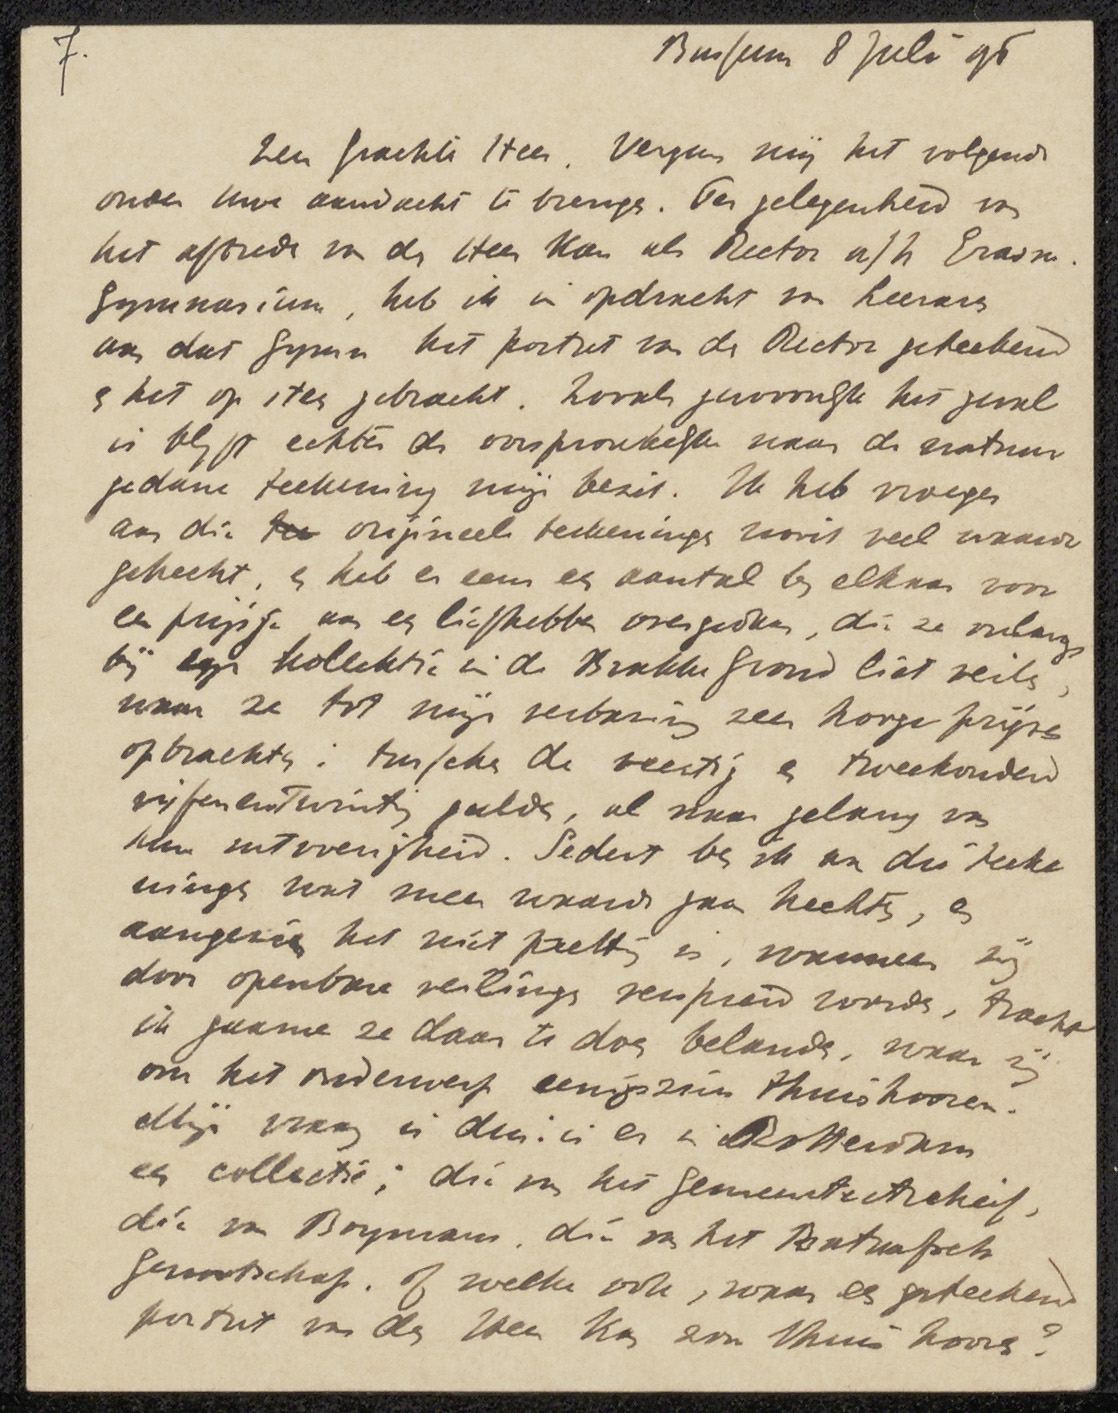 7.
Bussum 8 Juli 96
Zeer Geachte Heer. Vergun mij het volgende
onder Uwe aandacht te brengen. Ter gelegenheid van
het aftreden van den Heer Kan als Rector a/h Erasm.
Gymnasium, heb ik in opdracht van Leeraren
aan dat Gymn het portret van den Rector geteekend
en het op steen gebracht. Zooals gewoonlijk het geval
is blijft echter de oorspronkelijke naar de natuur
gedane teekening mijn bezit. Ik heb vroeger
aan die origineele teekeningen nooit veel waarde
gehecht, en heb er eens een aantal bij elkaar voor
een prijsje aan een liefhebber overgedaan, die ze onlangs
bij kollektie in de Brakke Grond liet veilen,
waar ze tot mijn verbazing zeer hooge prijzen
opbrachten: tusschen de veertig en tweehonderd
vijfenentwintig gulden, al naar gelang van
hun uitvoerigheid. Sedert ben ik aan die teeke
ningen wat meer waarde gaan hechten, en
aangezien het niet prettig is, wanneer zij
door openbare veilingen verspreid worden, tracht
ik gaarne ze daar te doen belanden, waar zij
om het onderwerp eenigszins thuishooren.
Mijn vraag is deze: is er in Rotterdam
een collectie; die van het Gemeentearchief,
die van Boymans, die van het Bataafsch
Genootschap. of welke ook, waar een geteekend
portret van den Heer Kan zou thuis hooren?